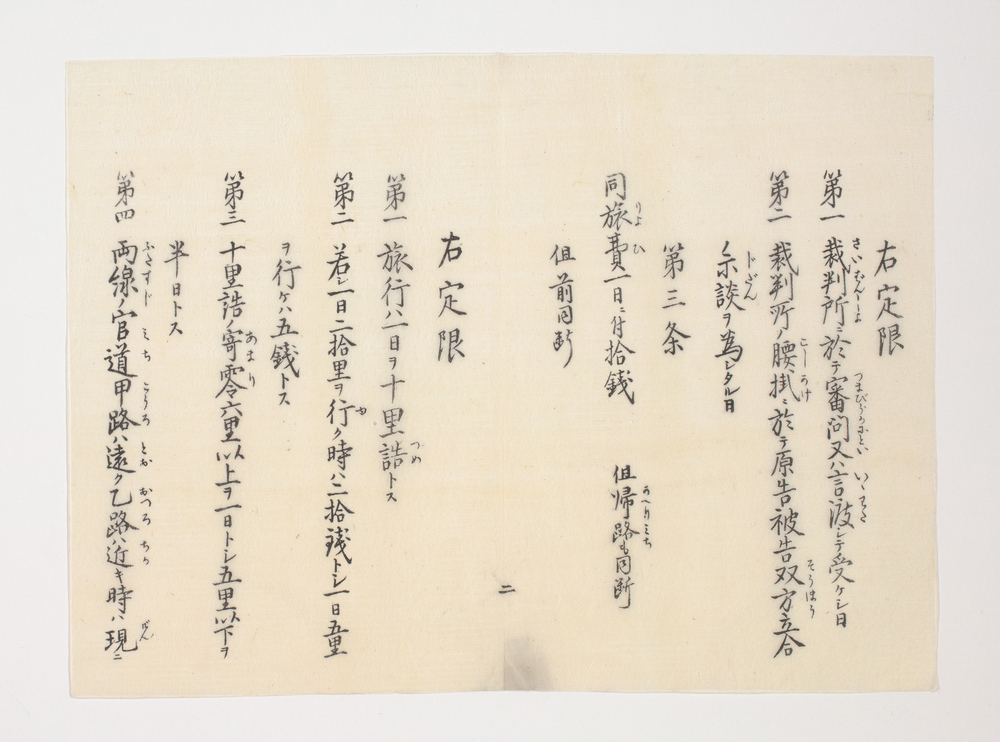 右定限
第一 裁判所ニ於テ審問又ハ言渡シテ受ケシ日
第二 裁判所ノ腰掛ニ於テ原告被告双方立合
示談ヲ為シタル日
第三条
同旅費一日ニ付拾銭 但帰路モ同断
但前同断
右定限
第一 旅行ハ一日ヲ十里詰トス
第二 若シ一日二拾里ヲ行ク時ハ二拾銭トシ一日五里
ヲ行ケハ五銭トス
第三 十里詰ノ寄零六里以上ヲ一日トシ五里以下ヲ
半日トス
第四 両線ノ官道甲路ハ遠ク乙路ハ近キ時ハ現ニ
二